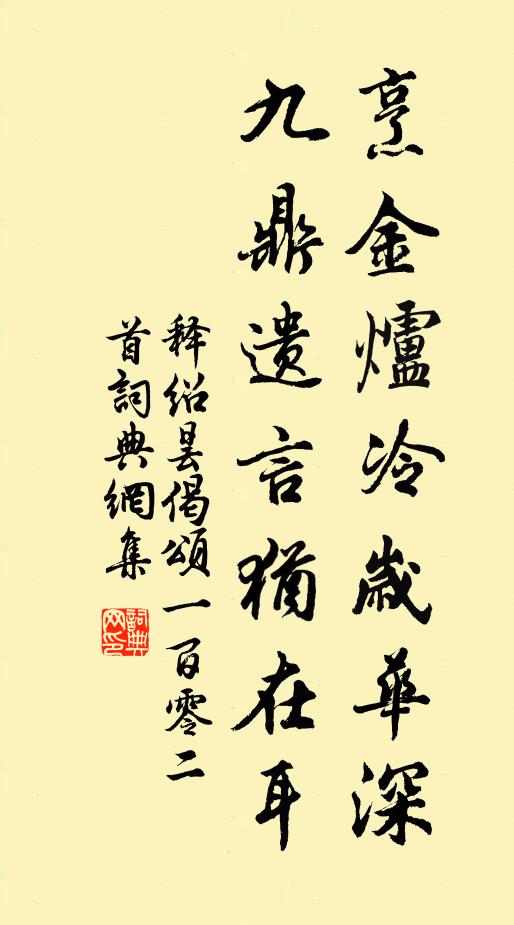 烹金爐冷歲華深
九鼎遺言猶在耳
釋紹曇偈頌一百零二
首詞典網集
詞典網印